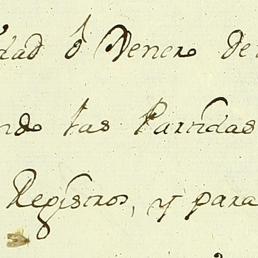 dad ó Dinero de
ndo las Partidas
Registros, y para